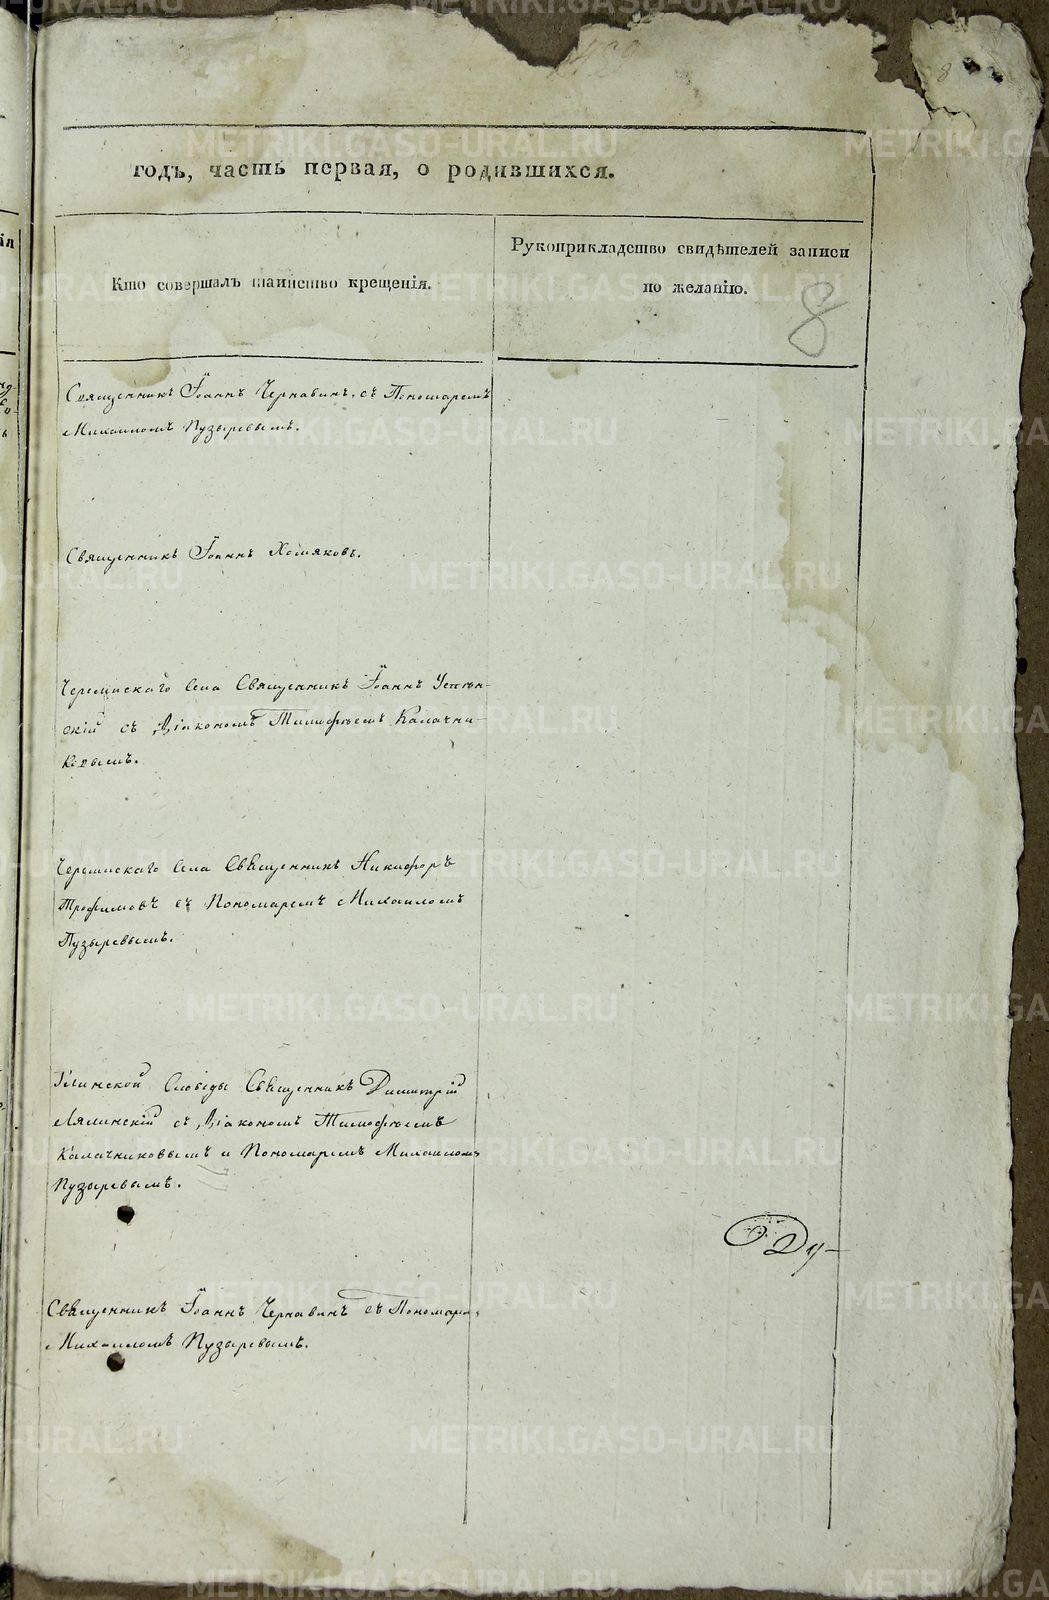 годъ, часть первая, о родившихся.
Кто совершалъ таинство крещенія.
Рукоприкладство свидѣтелей записи
по желанію.
8
Священникъ Іоаннъ Чернавинъ, съ Пономаремъ
Михаиломъ Пузыревымъ.
Священникъ Іоаннъ Хомяковъ.
Черемисскаго Села Священникъ Іоаннъ Успен-
скій съ Діакономъ Тимофѣемъ Калачни-
ковымъ.
Черемисскаго Села Священникъ Никифоръ
Трофимовъ съ Пономаремъ Михаиломъ
Пузыревымъ.
Слободы Священникъ Димитрій
Лялинскій съ Діакономъ Тимофѣемъ
Калачниковымъ и Пономаремъ Михаиломъ
Пузыревымъ.
Ду-
Священникъ Іоаннъ Чернавинъ съ Пономаре-
Михаиломъ Пузыревымъ.
METRIKI.GASO-URAL.RU